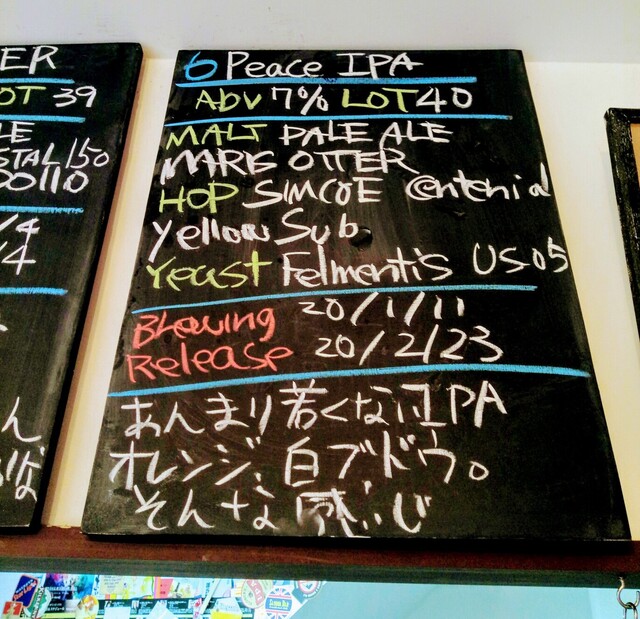 ER
OT 39
LE
STAL 150
00110
/4
/4
ん
6 Peace IPA
ABV 7% LOT 40
MALT PALE ALE
MARIS OTTER
HOP SIMCOE Centenial
Yellow Sub
Yeast Felmentis US05
Blewing 20/1/11
Release 20/2/23
あんまり若くないIPA
オレンジ、白ブドウ。
そんな感じ